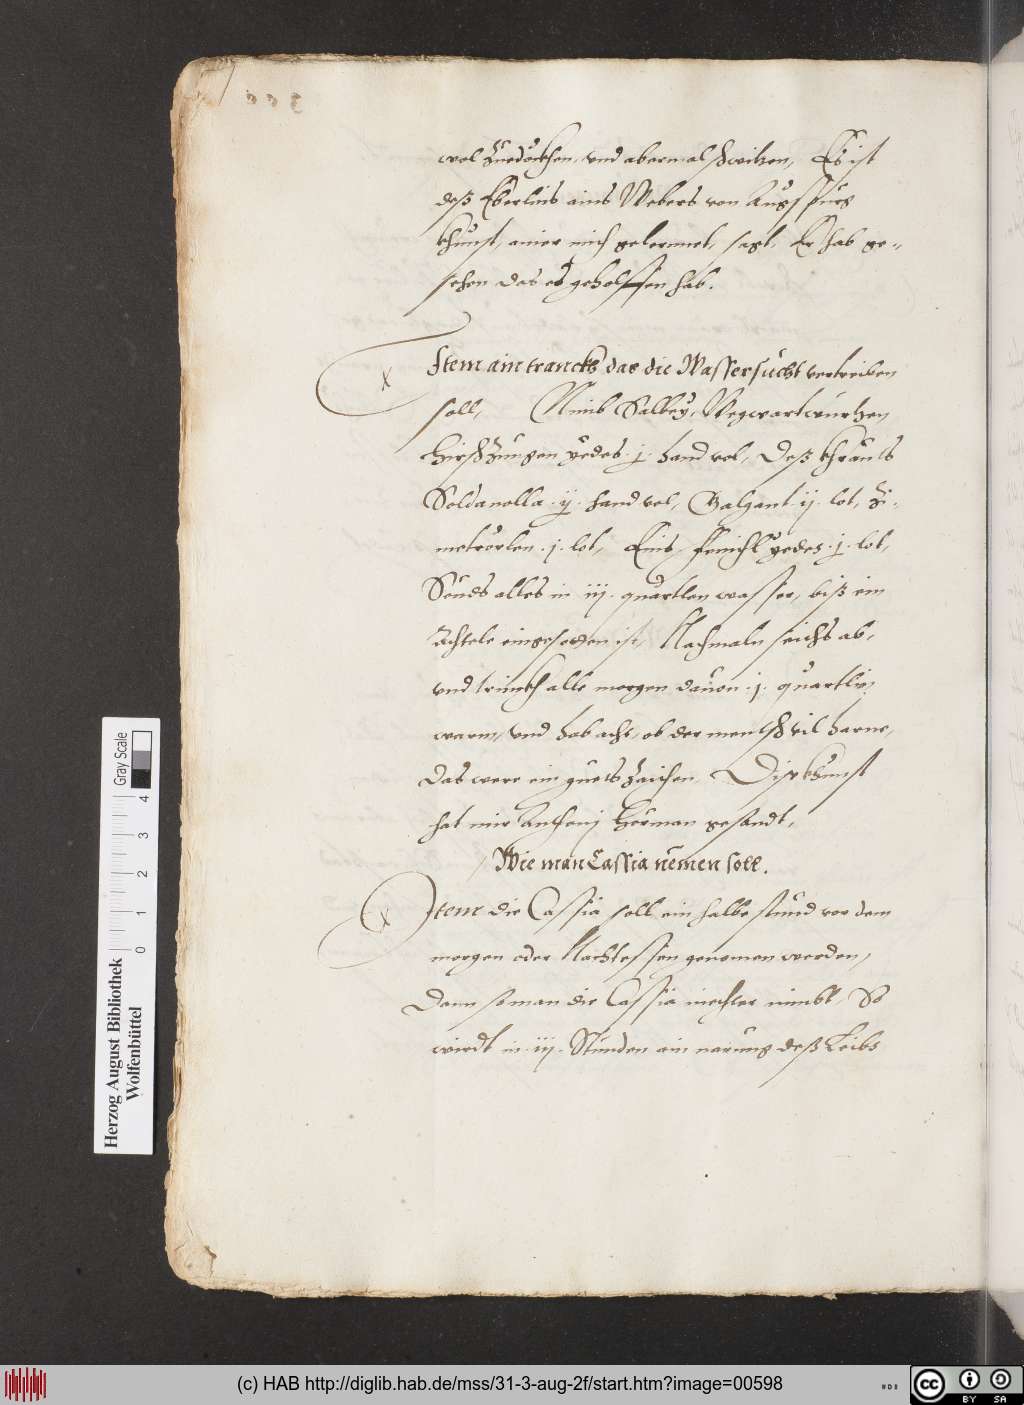 wol zuedöckhen, vnd abermal schwitzen, Es ist
deß Eberlins ains Webers von Augspurg
khunst, ainer mich gelernnet, sagt, Er hab ge-
sehen das es geholffen hab.
Item ain tranckh das die Wassersucht vertreiben
soll, Nimb Salbey, Wegwartwurtzen
Hirschzungen yedes .j. hand vol, Deß khrauts
Soldanella .ij. hand vol, Galgant .ij. lot, Zi-
metrörlen .j. lot, Enis, Fenichl yedes .j. lot,
Seuds alles in .iij. quartlen wasser, biß ein
Achtele eingesoden ist, Nachmaln seichs ab,
vnd trinckh alle morgen dauon .j. quartlin
warm, vnd hab acht, ob der mentsch vil harne,
Das were ein guets zaichen, Dise khunst
hat mir Anthonj Herman gesandt,
Wie man Cassia nemen soll.
Item die Cassia soll ein halbe stund vor dem
morgen oder Nachtessen genomen werden,
Dann so man die Cassia nimbt, So
wirdt in .iij. Stunden ein narung deß Leibs
Herzog August Bibliothek
Wolfenbüttel
Gray Scale
0 1 2 3 4
(c) HAB http://diglib.hab.de/mss/31-3-aug-2f/start.htm?image=00598
HAB
cc BY SA